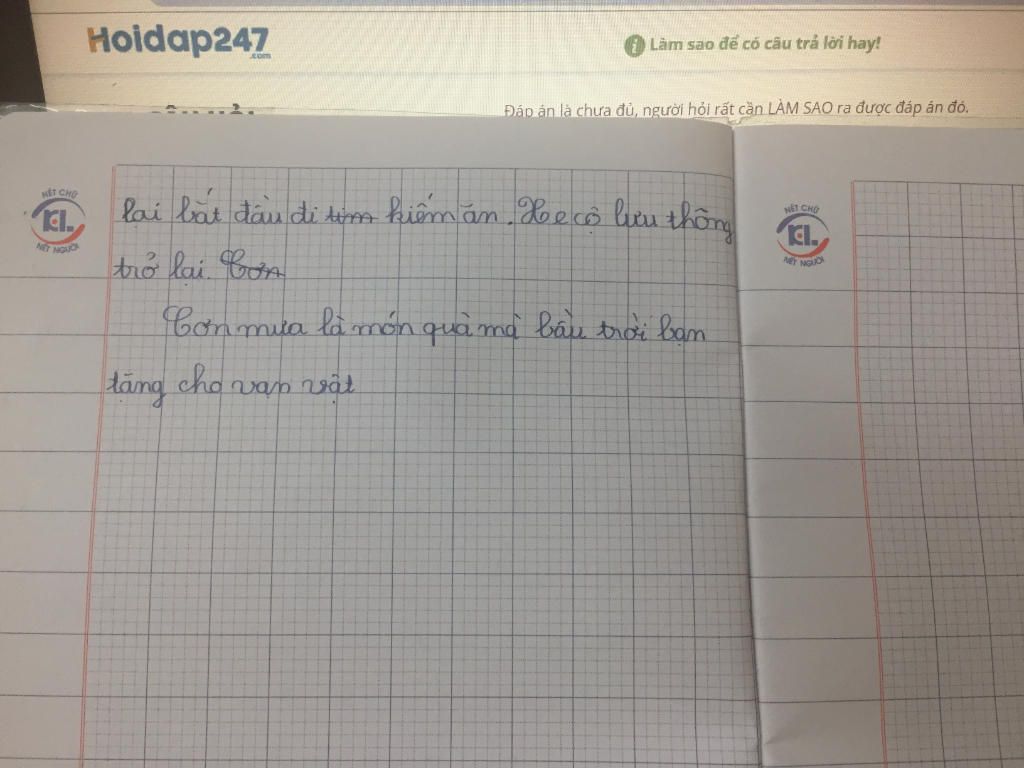 Hoidap247
.com
Làm sao để có câu trả lời hay!
Đáp án là chưa đủ, người hỏi rất cần LÀM SAO ra được đáp án đó.
NÉT CHỮ
KL
NẾT NGƯỜI
NÉT CHỮ
KL
NẾT NGƯỜI
lại bắt đầu đi tìm kiếm ăn. Xe cộ lưu thông
trở lại. Cơn
Cơn mưa là món quà mà bầu trời bạn
tặng cho vạn vật